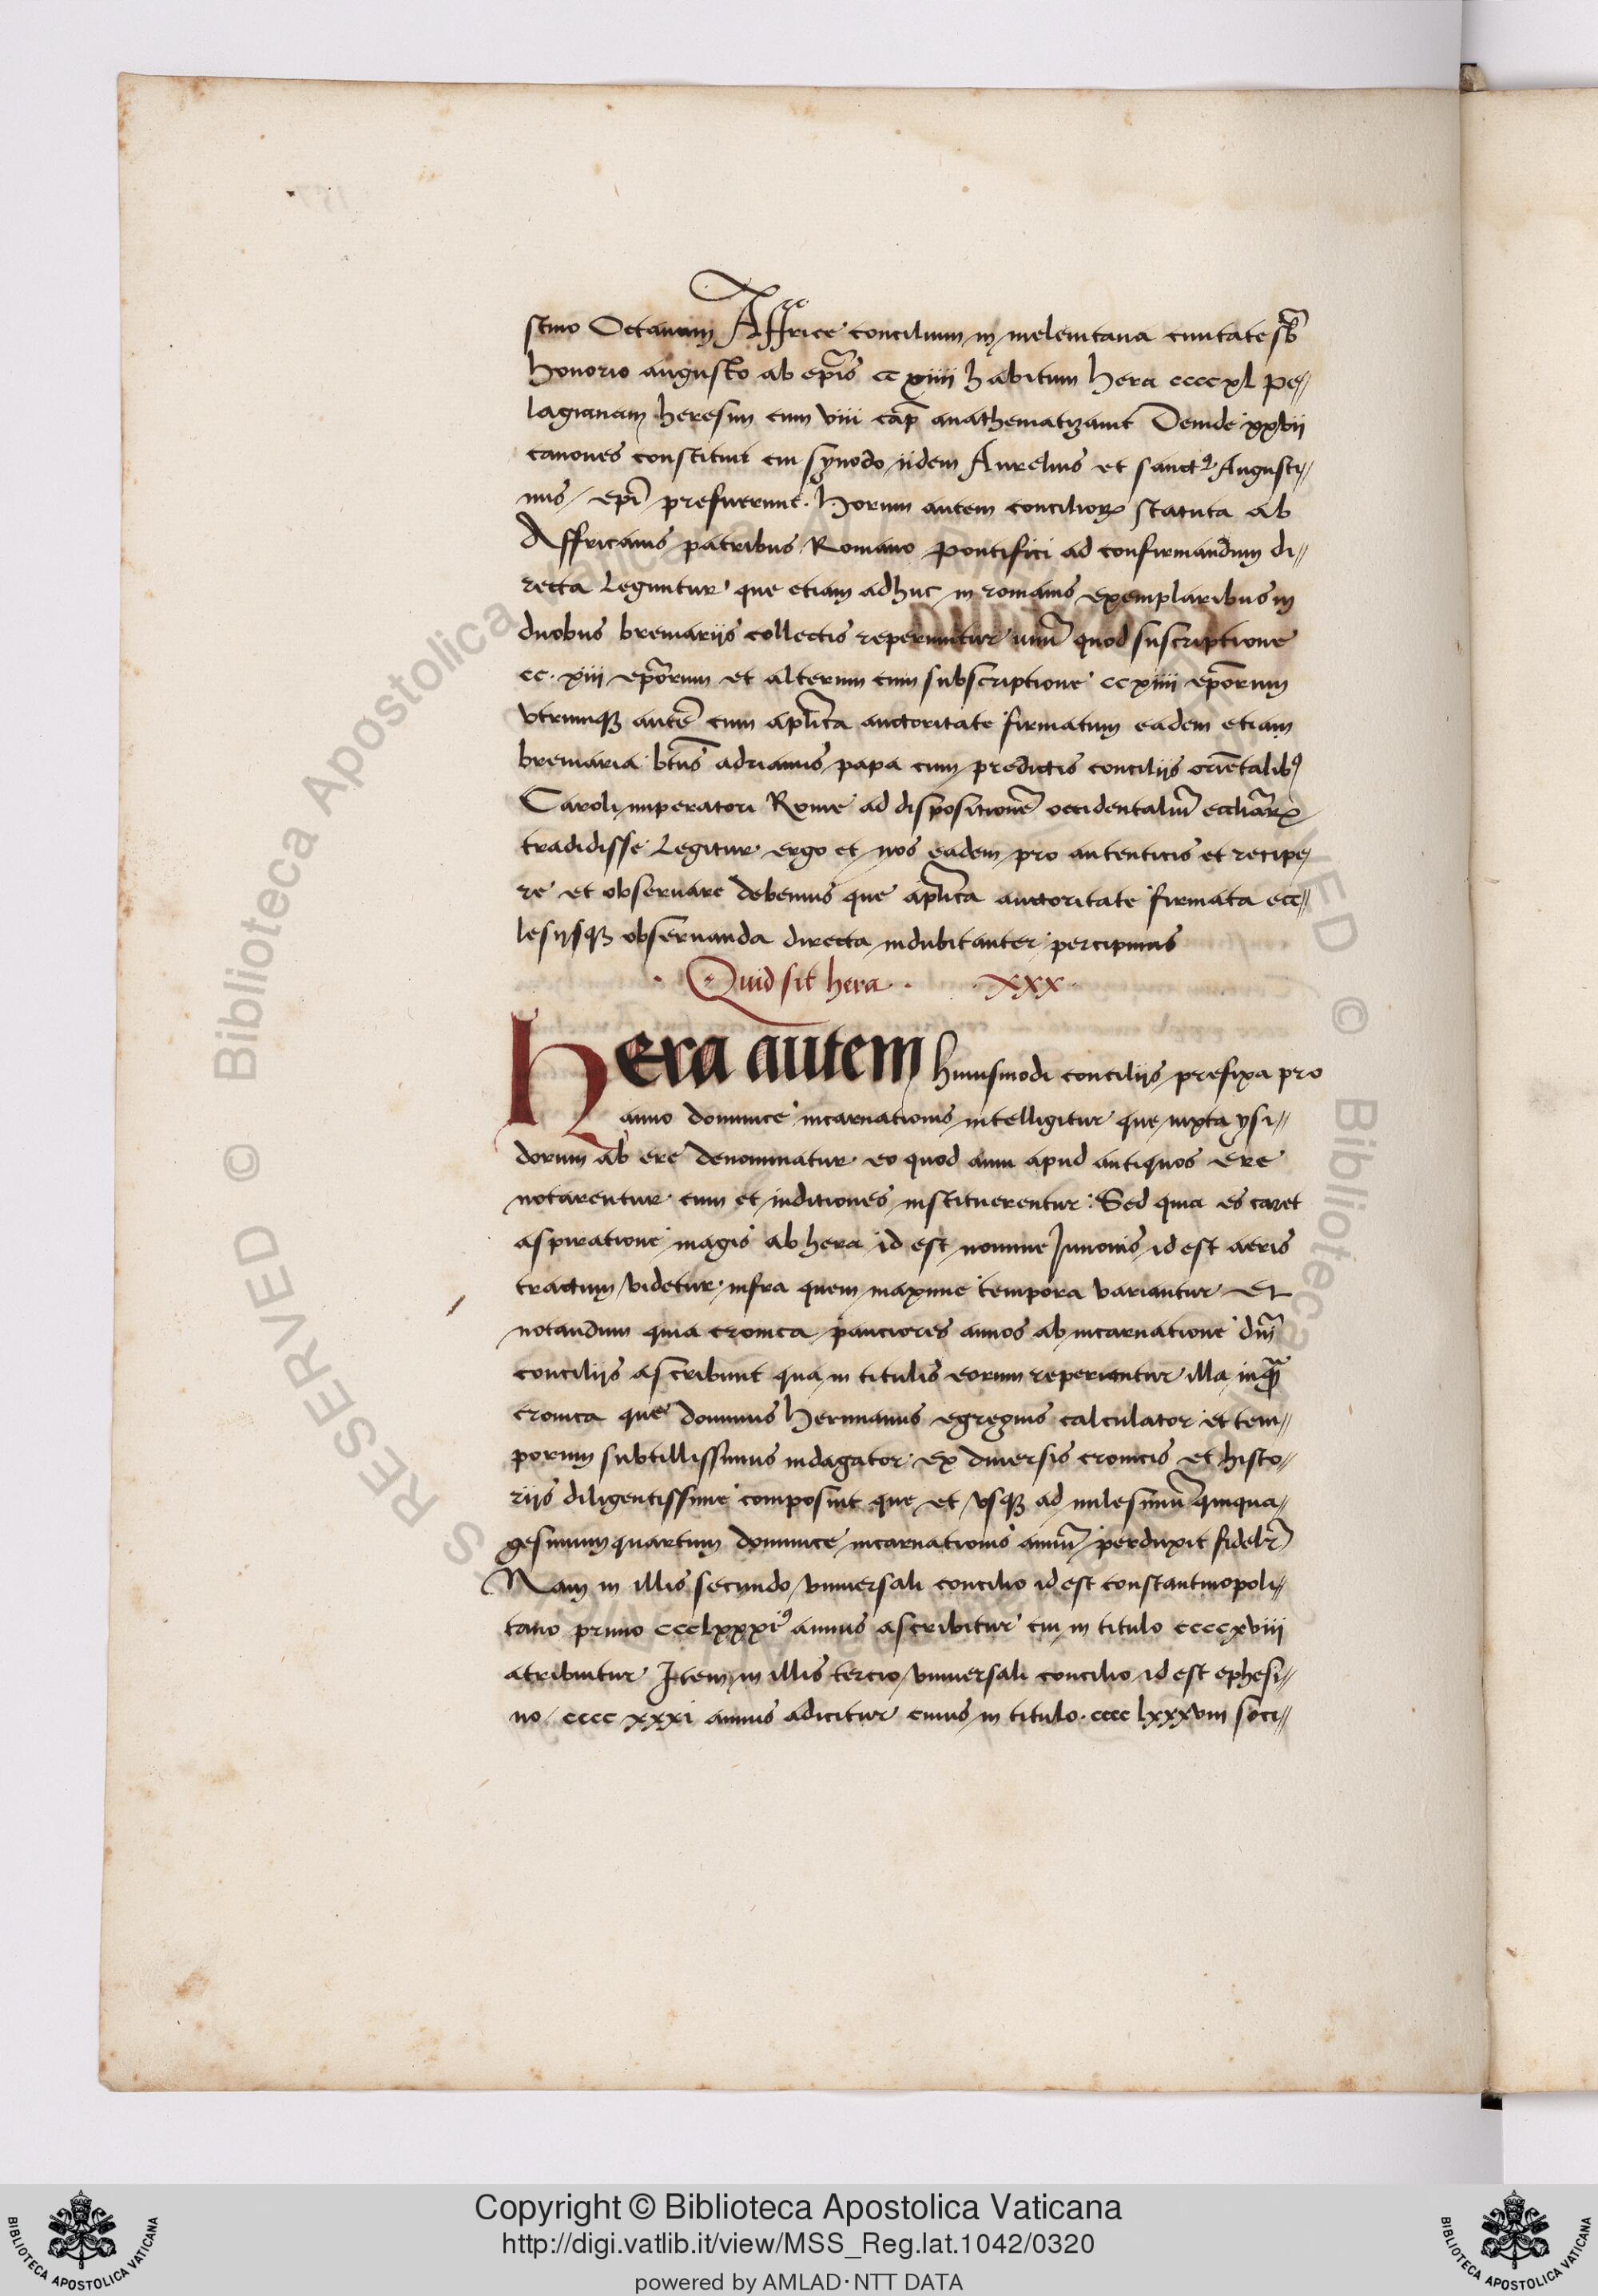 stino Octauam Affrice concilium in meleuitana ciuitate sb̄
honorio augusto ab ep̄is cc xiiii habitum hera ccccxl pe„
lagianam heresim cum viii cap̄ anathematizauit Deinde xxvii
canones constituit cui synodo iidem Aurelius et sanctꝰ Augusti„
nus epī prefuerunt. Horum autem conciliorꝝ statuta ab
Affricanis patribus Romano pontifici ad confirmandum di„
recta leguntur que etiam adhuc in romanis exemplaribus in
duobus breuiariis collectis reperiuntur unū quod suscriptione
cc. xiii ep̄orum et alterum cum subscriptione ccxiiii ep̄orum
vtrumqꝫ autē cum aplīca auctoritate firmatum eadem etiam
breuiaria bt̄us adrianus papa cum predictis conciliis oriētalibꝰ
Caroli imperatori Rome ad dispositionē occidentaliū eccliārꝝ
tradidisse legitur ergo et nos eadem pro autenticis et recipe„
re et obseruare debemus que aplīca auctoritate firmata ecc„
lesiisqꝫ obseruanda directa indubitanter percipimus
· Quid sit hera · · xxx ·
Hera autem huiusmodi conciliis prefixa pro
anno dominice incarnationis intelligitur que iuxta ysi„
dorum ab ere denominatur eo quod anni apud antiquos ere
notarentur cum et inditiones instituerentur. Sed quia es caret
aspiratione magis ab hera id est nomine Junonis id est aeris
tractum videtur infra quem maxime tempora variantur Et
notandum quia cronica pauciores annos ab incarnatione dnī
conciliis ascribunt qua in titulis eorum reperiantur illa inquā
cronica que dominus Hermanus egregius calculator et tem„
porum subtillissimus indagator ex diuersis cronicis et histo„
riis diligentissime composuit que et vsqꝫ ad milesimū quinqua„
gesimum quartum dominice incarnationis annū perduxit fidelr̄
Nam in illis secundo vniuersali concilio id est constantinopoli„
tano primo ccclxxxiꝰ annus ascribitur cui in titulo ccccxviii
atribuitur Item in illis tercio vniuersali concilio id est ephesi„
no cccc xxxi annus adicitur cuius in titulo. cccc lxxxviii soci„
Copyright © Biblioteca Apostolica Vaticana
http://digi.vatlib.it/view/MSS_Reg.lat.1042/0320
powered by AMLAD·NTT DATA